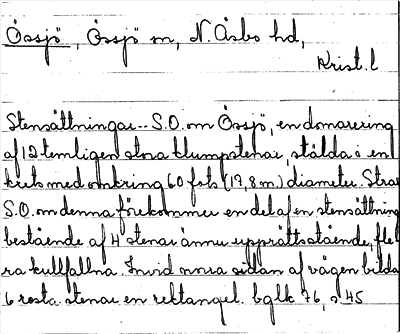 Össjö, Össjö sn, N. Åsbo hd,
Krist. l
Stensättningar.- S.O. om Össjö, en domarering
af 12 temligen stora klumpstenar, stälda i en
krets med omkring 60 fots (17,8 m.) diameter. Strax
S.O. om denna förekommer en del af en stensättning
bestående af 4 stenar ännu upprättstående, fle
ra kullfallna. Invid norra sidan af vägen bilda
6 resta stenar en rektangel. bglk 76, s. 45